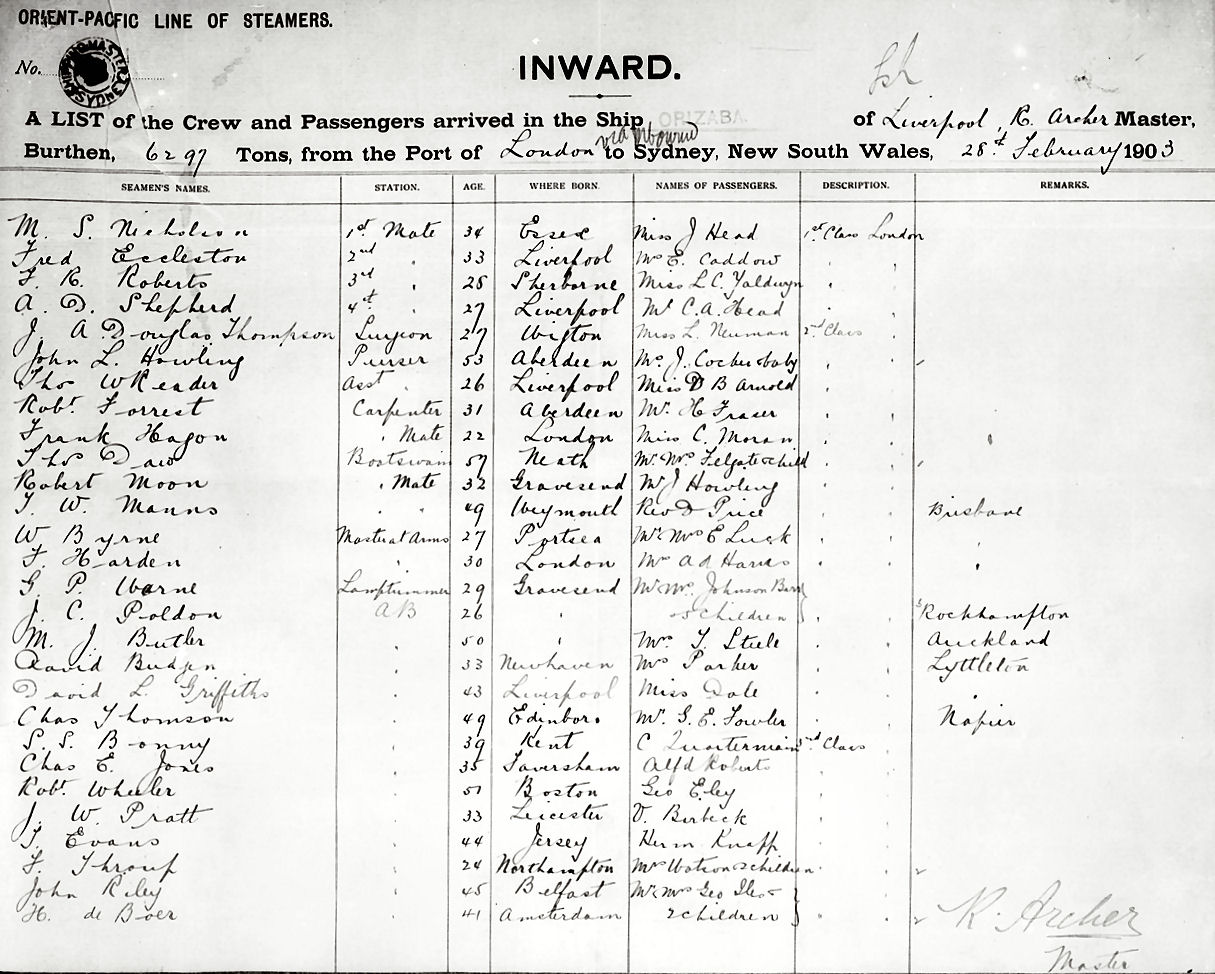 ORIENT-PACFIC LINE OF STEAMERS.
No.
INWARD.
A LIST of the Crew and Passengers arrived in the Ship ORIZABA. of Liverpool, R. Archer Master,
Burthen, 6297 Tons, from the Port of London via to Sydney, New South Wales, 28th February 1903
SEAMEN'S NAMES. STATION. AGE. WHERE BORN. NAMES OF PASSENGERS. DESCRIPTION. REMARKS.
M. S. Nicholson 1st Mate 34 Essex Miss J Head 1st Class London
Fred Eccleston 2nd " 33 Liverpool Mrs E. Caddow " "
F. R. Roberts 3rd " 28 Sherborne Miss L C. Yaldwyn " "
A. D. Shepherd 4th " 27 Liverpool Mr C. A. Head " "
J. A Douglas Thompson Surgeon 27 Wigton Miss L. Neuman 2nd Class
John L. Howling Purser 53 Aberdeen Mrs J. " "
Thos W Reader Asst " 26 Liverpool Miss D B Arnold " "
Robt Forrest Carpenter 31 Aberdeen Mr H Fraser " "
Frank Hagon " Mate 22 London Miss C. Moran " " "
Thos Daw Boatswain 57 Neath Mr Mrs Felgate & child " "
Robert Moon " Mate 32 Gravesend Mr J Howling " "
T. W. Manns " " 49 Weymouth Rev D Price " " Brisbane
W Byrne Master at Arms 27 Portsea Mr Mrs E Luck " " "
F. Harden " 30 London Mrs A d " " "
G. P. Warne Lamptrimmer 29 Gravesend Mr Mrs Johnson " "
J. C. Poldon AB 26 " children " " Rockhampton
M. J. Butler " 50 " Mrs T. Steele " " Auckland
David " 33 Newhaven Mrs Parker " " Lyttleton
David L. Griffiths " 43 Liverpool Miss Dale " " "
Chas Thomson " 49 Edinboro Mr G. E. Fowler " " Napier
S. S. Bonny " 39 Kent C Quartermain 3rd Class
Chas E. Jones " 35 Faversham Alfd Roberts " "
Robt Wheeler " 51 Boston Geo Eley " "
J. W. Pratt " 33 Leicester " "
T. Evans " 44 Jersey Herm Knapp " "
F. " 24 Northampton Mrs Watson & children " "
John Riley " 45 Belfast Mr Mrs Geo
H. de Boer " 41 Amsterdam 2 children " "
R. Archer
Master